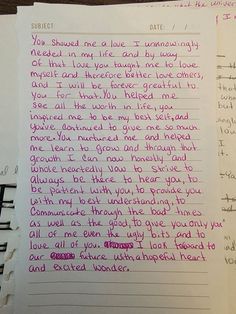 SUBJECT:
DATE: / /
You showed me a love I unknowingly
needed in my life and by way
of that love you taught me to love
myself and therefore better love others,
and I will be forever greatful to
you for that. You helped me
see all the worth in life, you
inspired me to be my best self, and
you've continued to give me so much
more. You nurtured me and helped
me learn to grow and through that
growth I can now honestly and
whole heartedly vow to strive to
always be there to hear you, to
be patient with you, to provide you
with my best understanding, to
communicate through the bad times
as well as the good, to give you only you
all of me even the ugly bits and to
love all of you. I look forward to
our future with a hopeful heart
and excited wonder.